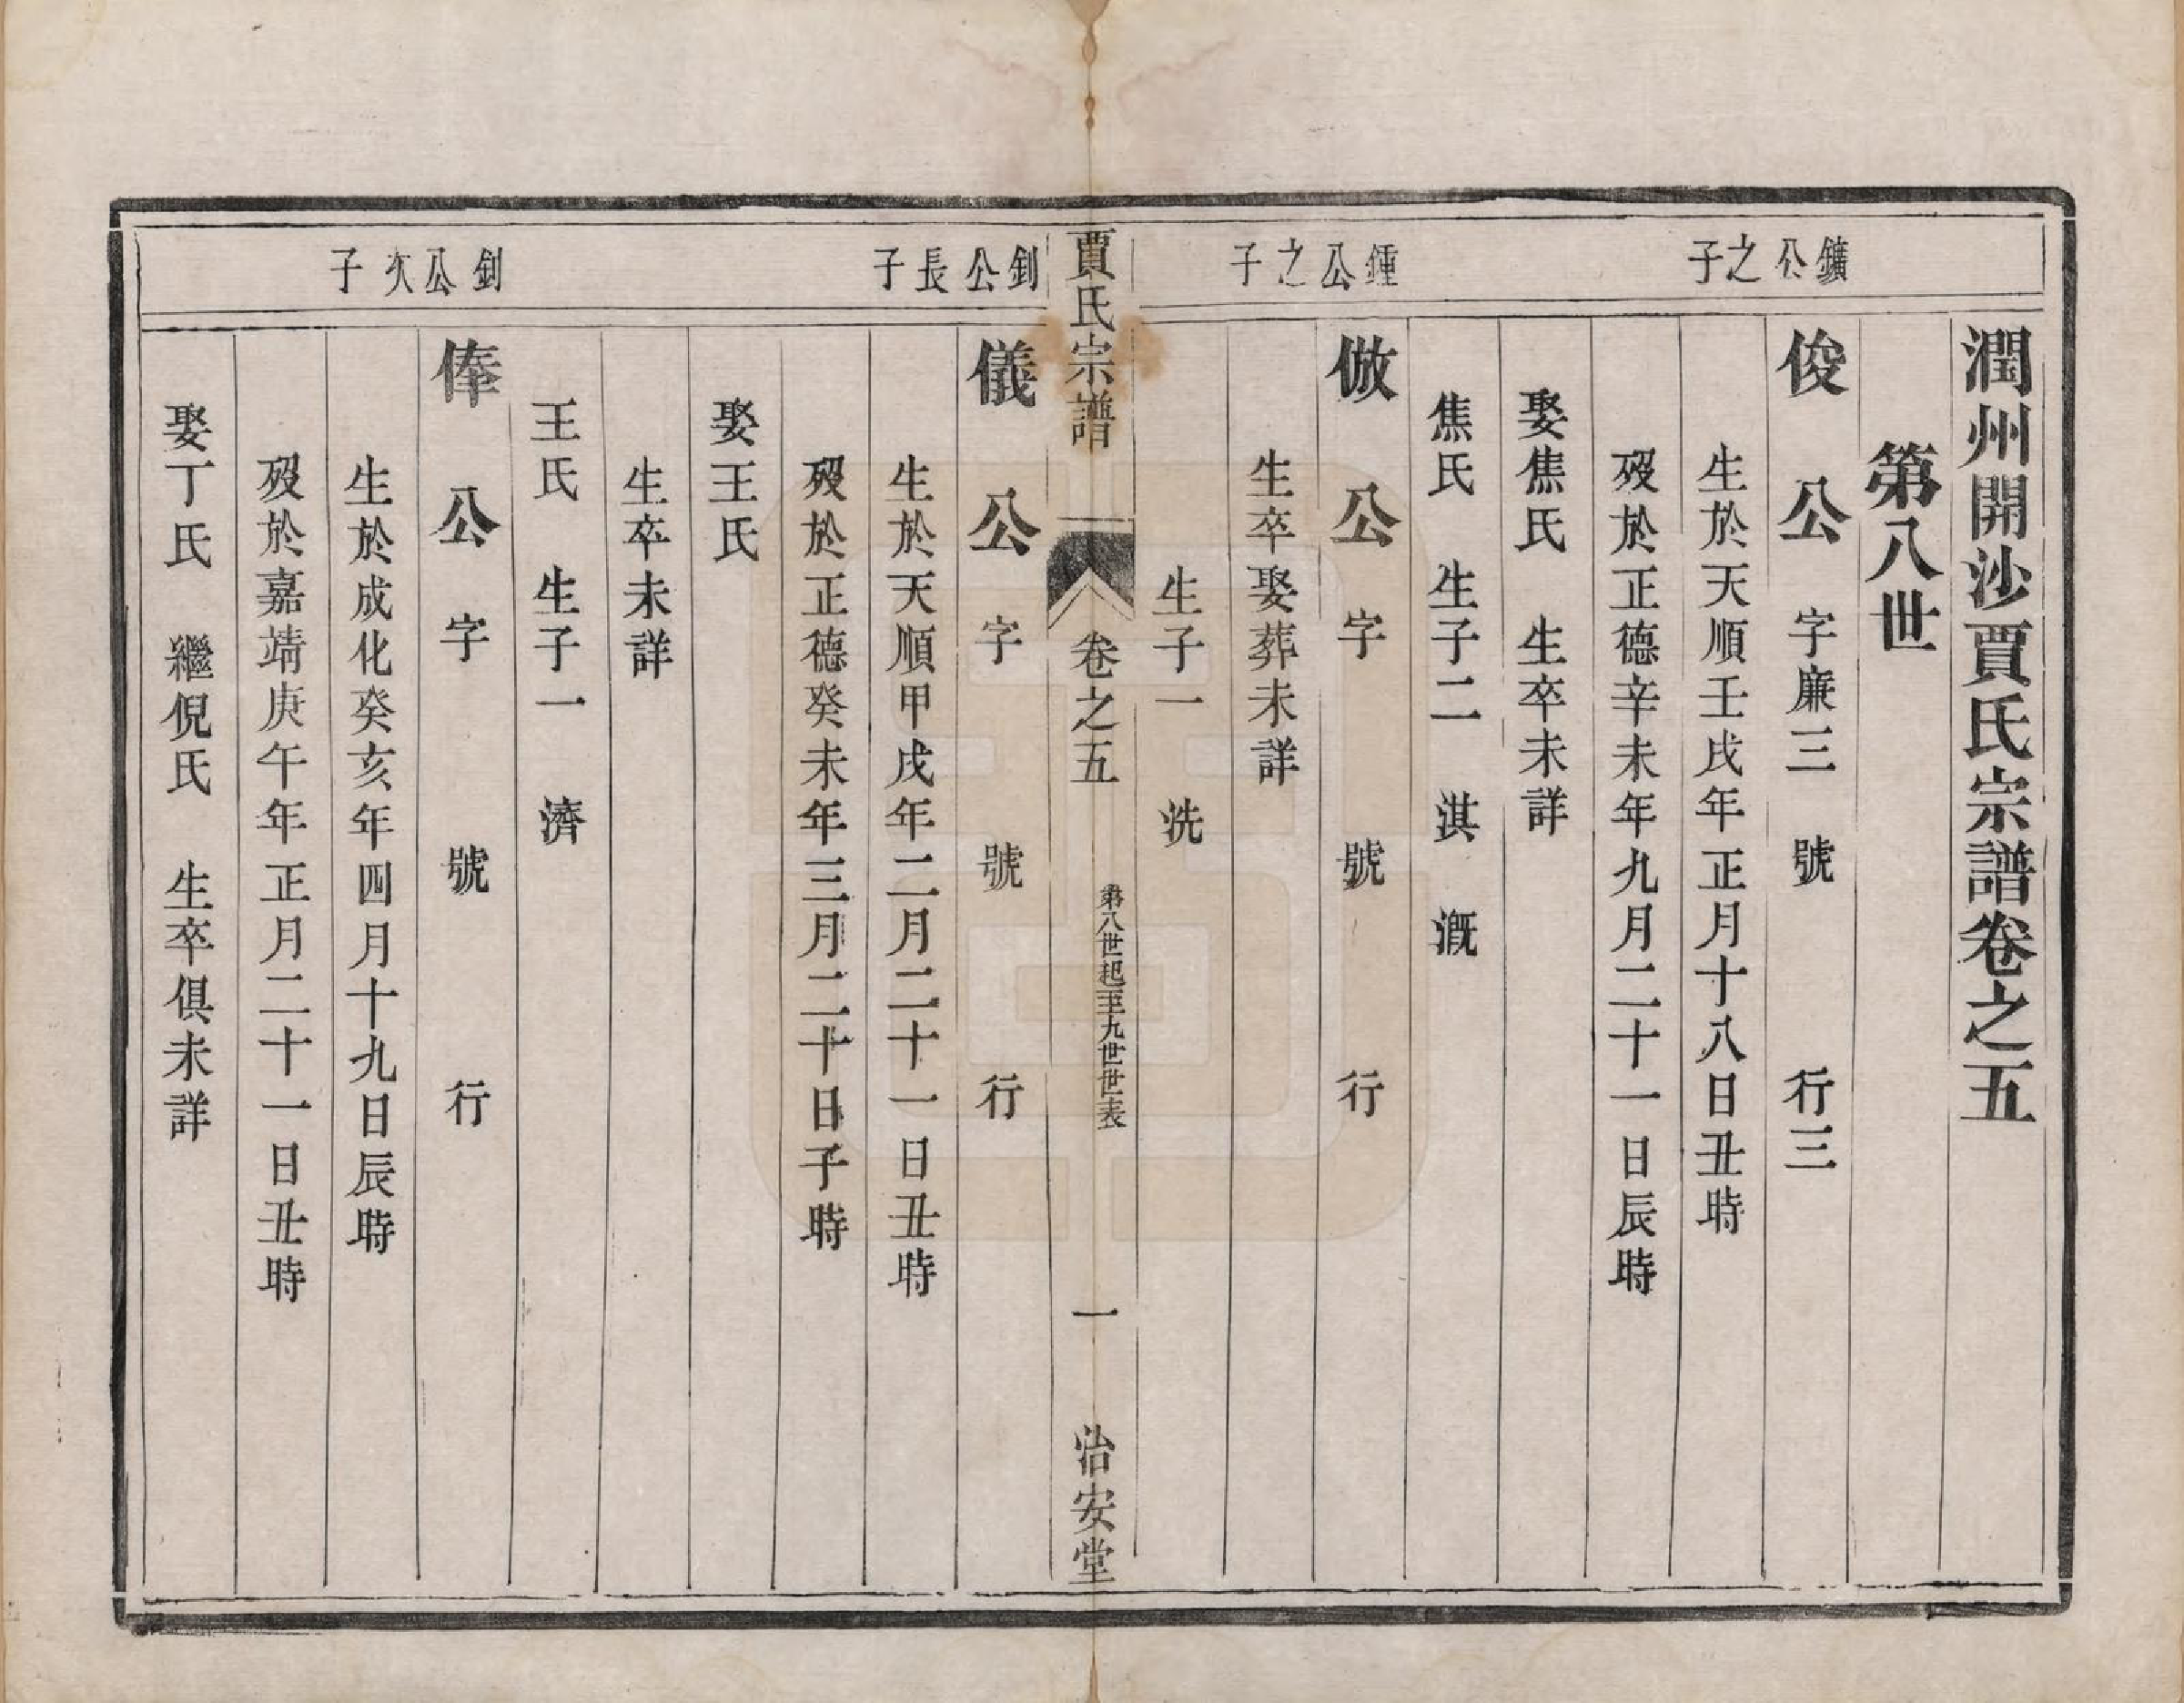 潤州開沙賈氏宗譜卷之五
第八世
鑛公之子
俊公 字廉三 號 行三
生於天順壬戌年正月十八日丑時
歿於正德辛未年九月二十一日辰時
娶焦氏 生卒未詳
焦氏 生子二 淇 溉
鍾公之子
倣公 字 號 行
生卒娶葬未詳
生子一 洗
賈氏宗譜 卷之五 第八世起至九世世表 一 治安堂
釗公長子
儀公 字 號 行
生於天順甲戌年二月二十一日丑時
歿於正德癸未年三月二十日子時
娶王氏
生卒未詳
王氏 生子一 濟
釗公次子
俸公 字 號 行
生於成化癸亥年四月十九日辰時
歿於嘉靖庚午年正月二十一日丑時
娶丁氏 繼倪氏 生卒俱未詳